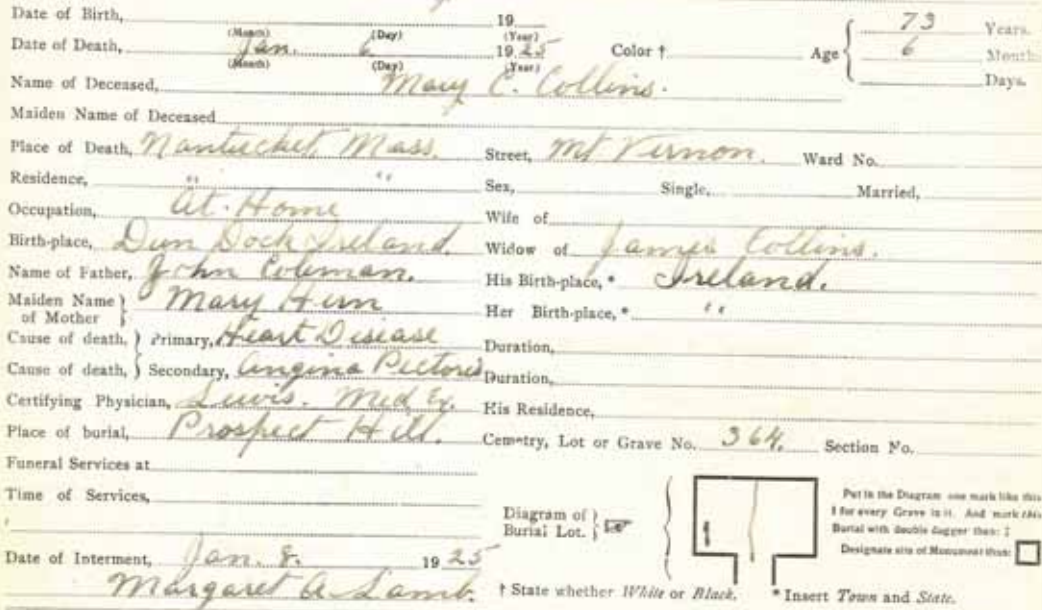 Date of Birth, 19 73 Years.
(Month) (Day) (Year)
Date of Death, Jan. 6 1925 Color † Age 6 Months
(Month) (Day) (Year)
Name of Deceased, Mary C. Collins. Days.
Maiden Name of Deceased
Place of Death, Nantucket, Mass. Street, Mt Vernon. Ward No.
Residence, " " Sex, Single, Married,
Occupation, At-Home Wife of
Birth-place, Dun Dock Ireland. Widow of James Collins.
Name of Father, John Coleman. His Birth-place, * Ireland.
Maiden Name of Mother Mary Hirn Her Birth-place, * "
Cause of death, Primary, Heart Disease Duration,
Cause of death, Secondary, Angina Pictoris Duration,
Certifying Physician, Lewis. Med Ex. His Residence,
Place of burial, Prospect Hill. Cemetry, Lot or Grave No. 364. Section No.
Funeral Services at
Time of Services,
Diagram of Burial Lot.
Put in the Diagram one mark like this
I for every Grave in it. And mark this
Burial with double dagger thus: ‡
Designate site of Monument thus:
Date of Interment, Jan. 8. 1925
Margaret A. Lamb. † State whether White or Black. * Insert Town and State.